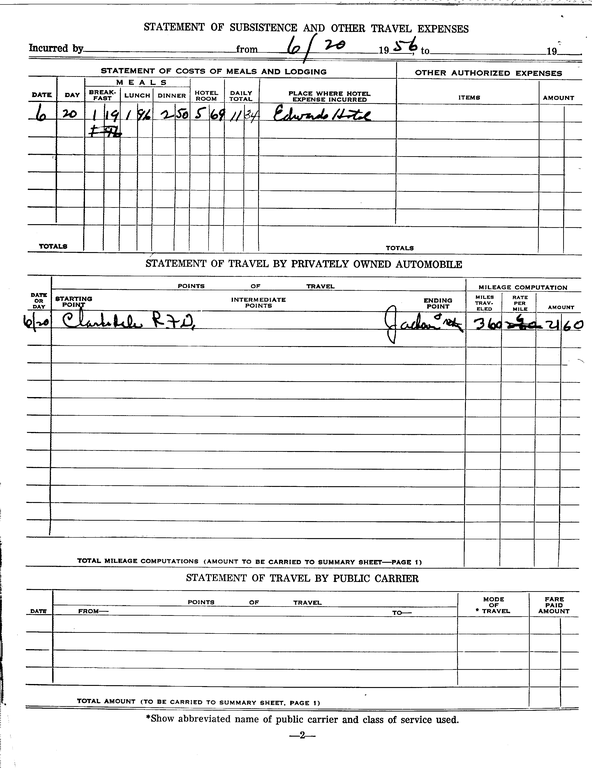 STATEMENT OF SUBSISTENCE AND OTHER TRAVEL EXPENSES
Incurred by from 6/20 1956, to 19
STATEMENT OF COSTS OF MEALS AND LODGING OTHER AUTHORIZED EXPENSES
DATE DAY MEALS BREAK-FAST LUNCH DINNER HOTEL ROOM DAILY TOTAL PLACE WHERE HOTEL EXPENSE INCURRED ITEMS AMOUNT
6 20 1 19 1 96 2 50 5 69 11 34 Edwards Hotel
TOTALS TOTALS
STATEMENT OF TRAVEL BY PRIVATELY OWNED AUTOMOBILE
POINTS OF TRAVEL MILEAGE COMPUTATION
DATE OR DAY STARTING POINT INTERMEDIATE POINTS ENDING POINT MILES TRAV-ELED RATE PER MILE AMOUNT
6/20 Clarksdale R.F.D. Jackson 360 6 21 60
TOTAL MILEAGE COMPUTATIONS (AMOUNT TO BE CARRIED TO SUMMARY SHEET—PAGE 1)
STATEMENT OF TRAVEL BY PUBLIC CARRIER
POINTS OF TRAVEL
DATE FROM— TO— MODE OF * TRAVEL FARE PAID AMOUNT
TOTAL AMOUNT (TO BE CARRIED TO SUMMARY SHEET, PAGE 1)
*Show abbreviated name of public carrier and class of service used.
—2—